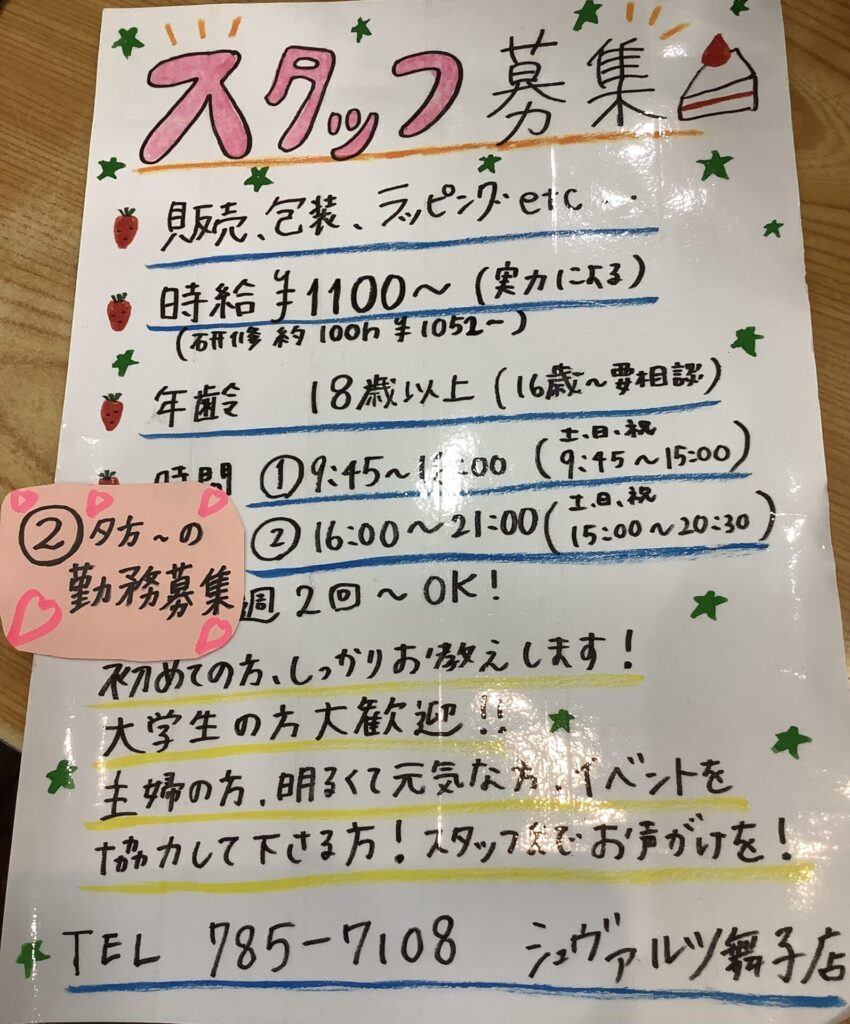 スタッフ募集
販売、包装、ラッピング etc…
時給 ¥1100〜 (実力による)
(研修 約 100h ¥1052〜)
年齢 18歳以上 (16歳〜要相談)
時間 ①9:45〜 :00 (土、日、祝 9:45〜15:00)
②16:00〜21:00 (土、日、祝 15:00〜20:30)
②夕方〜の
勤務募集
週2回〜OK!
初めての方、しっかりお教えします!
大学生の方大歓迎!!
主婦の方、明るくて元気な方、イベントを
協力して下さる方! スタッフまでお声がけを!
TEL 785-7108 シュヴァルツ舞子店